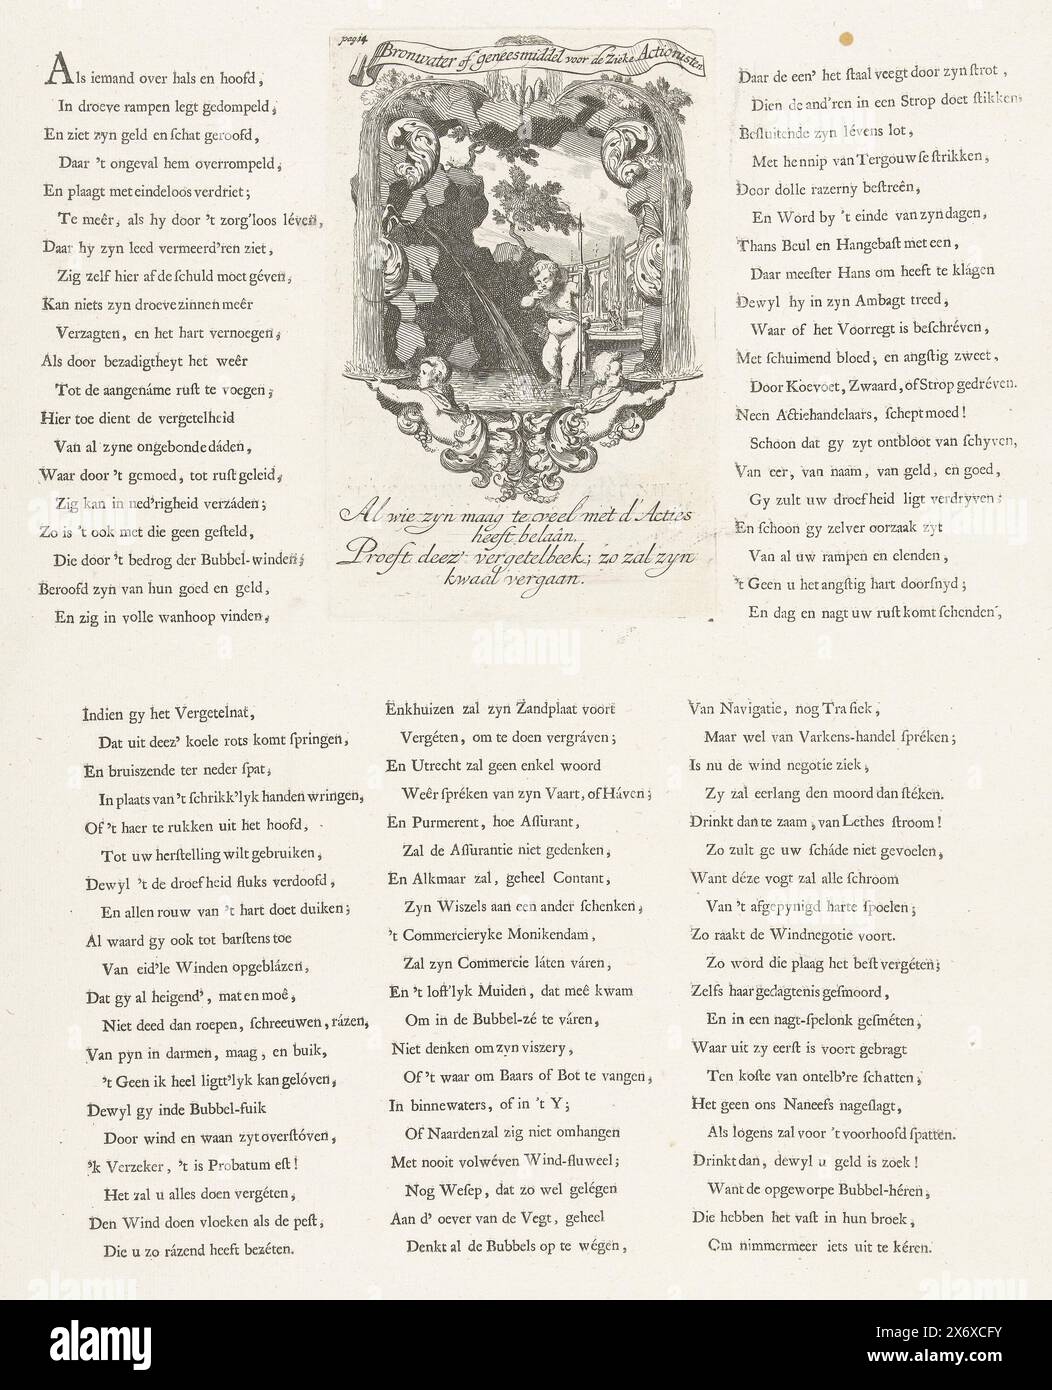 pag 14
Bronwater of geneesmiddel voor de Zieke Actionisten
Als iemand over hals en hoofd,
In droeve rampen legt gedompeld,
En ziet zyn geld en schat geroofd,
Daar 't ongeval hem overrompeld,
En plaagt met eindeloos verdriet;
Te meêr, als hy door 't zorg'loos léven,
Daar hy zyn leed vermeerd'ren ziet,
Zig zelf hier af de schuld moet géven,
Kan niets zyn droeve zinnen meêr
Verzagten, en het hart vernoegen,
Als door bezadigtheyt het weêr
Tot de aangenáme rust te voegen;
Hier toe dient de vergetelheid
Van al zyne ongebonde dáden,
Waar door 't gemoed, tot rust geleid,
Zig kan in ned'righeid verzáden;
Zo is 't ook met die geen gesteld,
Die door 't bedrog der Bubbel-winden,
Beroofd zyn van hun goed en geld,
En zig in volle wanhoop vinden,
Al wie zyn maag te veel met d'Acties
heeft belaân.
Proeft deez' vergetelbeek; zo zal zyn
kwaal vergaan.
Daar de een' het staal veegt door zyn strot,
Dien de and'ren in een Strop doet stikken,
Besluitende zyn lévens lot,
Met hennip van Tergouw se strikken,
Door dolle razerny bestreên,
En Word by 't einde van zyn dagen,
Thans Beul en Hangebast met een,
Daar meester Hans om heeft te klágen
Dewyl hy in zyn Ambagt treed,
Waar of het Voorregt is beschréven,
Met schuimend bloed, en angstig zweet,
Door Koevoet, Zwaard, of Strop gedréven.
Neen Actiehandelaars, schept moed!
Schoon dat gy zyt ontbloot van schyven,
Van eer, van naam, van geld, en goed,
Gy zult uw droefheid ligt verdryven;
En schoon gy zelver oorzaak zyt
Van al uw rampen en elenden,
't Geen u het angstig hart doorsnyd;
En dag en nagt uw rust komt schenden,
Indien gy het Vergetelnat,
Dat uit deez' koele rots komt springen,
En bruiszende ter neder spat,
In plaats van 't schrikk'lyk handen wringen,
Of 't haer te rukken uit het hoofd,
Tot uw herstelling wilt gebruiken,
Dewyl 't de droefheid fluks verdoofd,
En allen rouw van 't hart doet duiken;
Al waard gy ook tot barstens toe
Van eid'le Winden opgeblázen,
Dat gy al heigend', mat en moê,
Niet deed dan roepen, schreeuwen, rázen,
Van pyn in darmen, maag, en buik,
't Geen ik heel ligtt'lyk kan gelóven,
Dewyl gy inde Bubbel-fuik
Door wind en waan zyt overstóven,
'k Verzeker, 't is Probatum est!
Het zal u alles doen vergéten,
Den Wind doen vloeken als de pest,
Die u zo rázend heeft bezéten.
Enkhuizen zal zyn Zandplaat voort
Vergéten, om te doen vergráven;
En Utrecht zal geen enkel woord
Weêr spréken van zyn Vaart, of Háven;
En Purmerent, hoe Assurant,
Zal de Assurantie niet gedenken,
En Alkmaar zal, geheel Contant,
Zyn Wiszels aan een ander schenken,
't Commercieryke Monikendam,
Zal zyn Commercie láten váren,
En 't lost'lyk Muiden, dat meê kwam
Om in de Bubbel-zé te váren,
Niet denken om zyn viszery,
Of 't waar om Baars of Bot te vangen,
In binnewaters, of in 't Y;
Of Naarden zal zig niet omhangen
Met nooit volwéven Wind-fluweel;
Nog Wesep, dat zo wel gelégen
Aan d' oever van de Vegt, geheel
Denkt al de Bubbels op te wégen,
Van Navigatie, nog Trasiek,
Maar wel van Varkens-handel spréken;
Is nu de wind negotie ziek,
Zy zal eerlang den moord dan stéken.
Drinkt dan te zaam, van Lethes stroom!
Zo zult ge uw scháde niet gevoelen,
Want déze vogt zal alle schroom
Van 't afgepynigd harte spoelen;
Zo raakt de Windnegotie voort.
Zo word die plaag het best vergéten;
Zelfs haar gedagtenis gesmoord,
En in een nagt-spelonk gesméten,
Waar uit zy eerst is voort gebragt
Ten koste van ontelb're schatten,
Het geen ons Naneefs nageslagt,
Als logens zal voor 't voorhoofd spatten.
Drinkt dan, dewyl u geld is zoek!
Want de opgeworpe Bubbel-héren,
Die hebben het vast in hun broek,
Om nimmermeer iets uit te kéren.
alamy
Image ID: 2X6XCFY
www.alamy.com